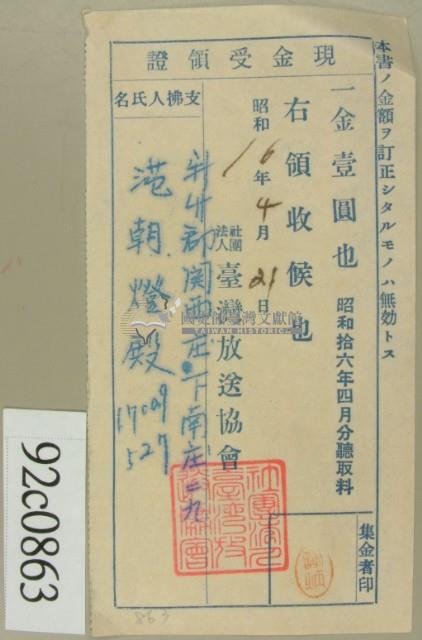 本書ノ金額ヲ訂正シタルモノハ無効トス
現金受領證
一金壹圓也 昭和拾六年四月分聽取料
右領收候也
昭和16年4月21日
社團法人臺灣放送協會
集金者印
支拂人氏名
新竹郡関西庄下南庄二九
范朝燈殿
17029
527
社團法人臺灣放送協會
國史館臺灣文獻館
TAIWAN HISTORICA
92c0863
863